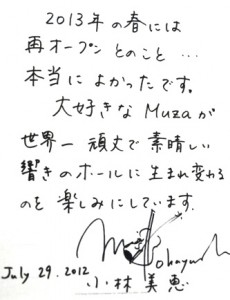 2013年の春には
再オープンとのこと…
本当によかったです。
大好きなMuzaが
世界一頑丈で素晴しい
響きのホールに生まれ変わる
のを楽しみにしています.
July 29. 2012
小林美恵